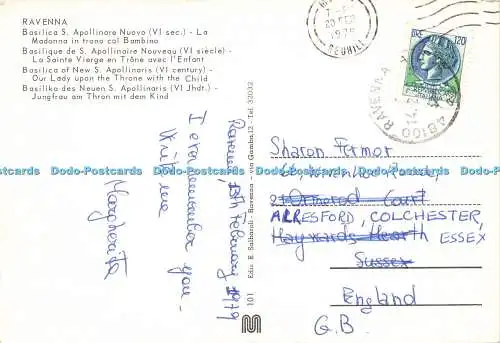 RAVENNA
Basilica S. Apollinare Nuovo (VI sec.) - La
Madonna in trono col Bambino
Basilique de S. Apollinaire Nouveau (VI siècle) -
La Sainte Vierge en Trône avec l'Enfant
Basilica of New S. Apollinaris (VI century) -
Our Lady upon the Throne with the Child
Basilika des Neuen S. Apollinaris (VI Jhdt.) -
Jungfrau am Thron mit dem Kind
20 FEB
1979
120
48100 RAVENNA
Ravenna, 13th February 1979
I can remember you -
Write me
Margherita
101 Ediz. E. Salbaroli - Ravenna - via Gamba, 12 - Tel. 32032
Sharon Fermor
Ormerod Court
ALRESFORD, COLCHESTER,
Haywards Hearth ESSEX
Sussex
England
G.B.
Dodo-Postcards Dodo-Postcards Dodo-Postcards Dodo-Postcards Dodo-Postcards Dodo-Postcards